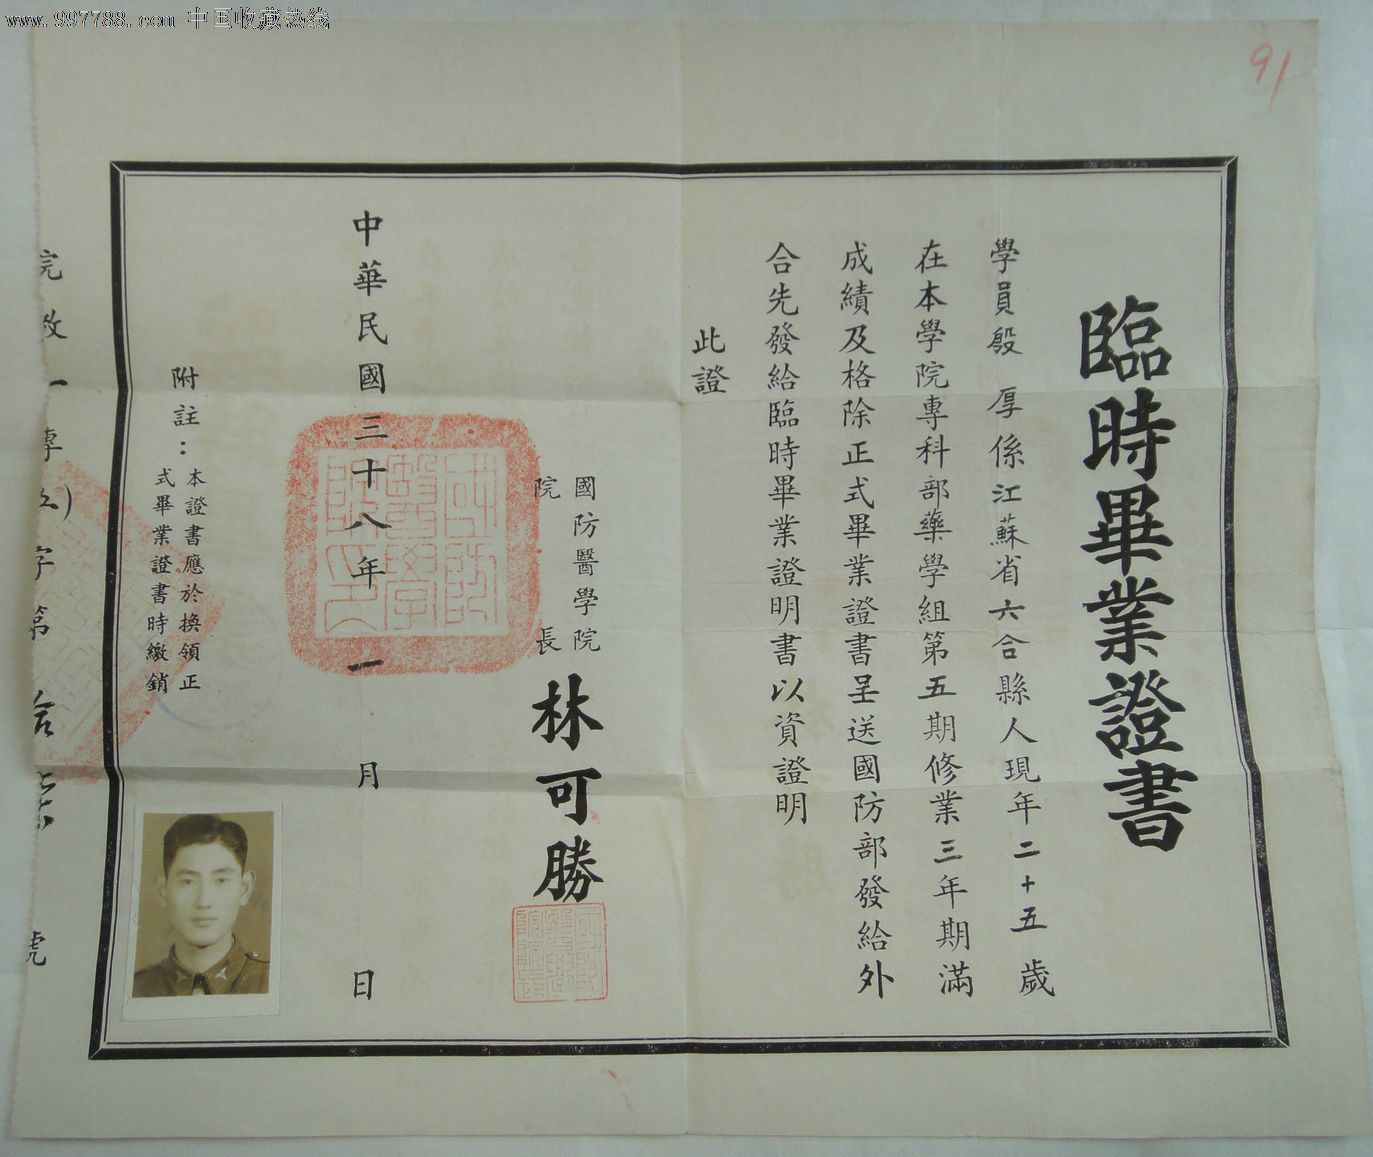 www.997788.com 中国收藏热线
91
臨時畢業證書
學員殷厚係江蘇省六合縣人現年二十五歲
在本學院專科部藥學組第五期修業三年期滿
成績及格除正式畢業證書呈送國防部發給外
合先發給臨時畢業證明書以資證明
此證
國防醫學院
院長 林可勝
國防醫學院院長
中華民國三十八年一月 日
國防醫學院印
附註：本證書應於換領正
式畢業證書時繳銷
字第
號